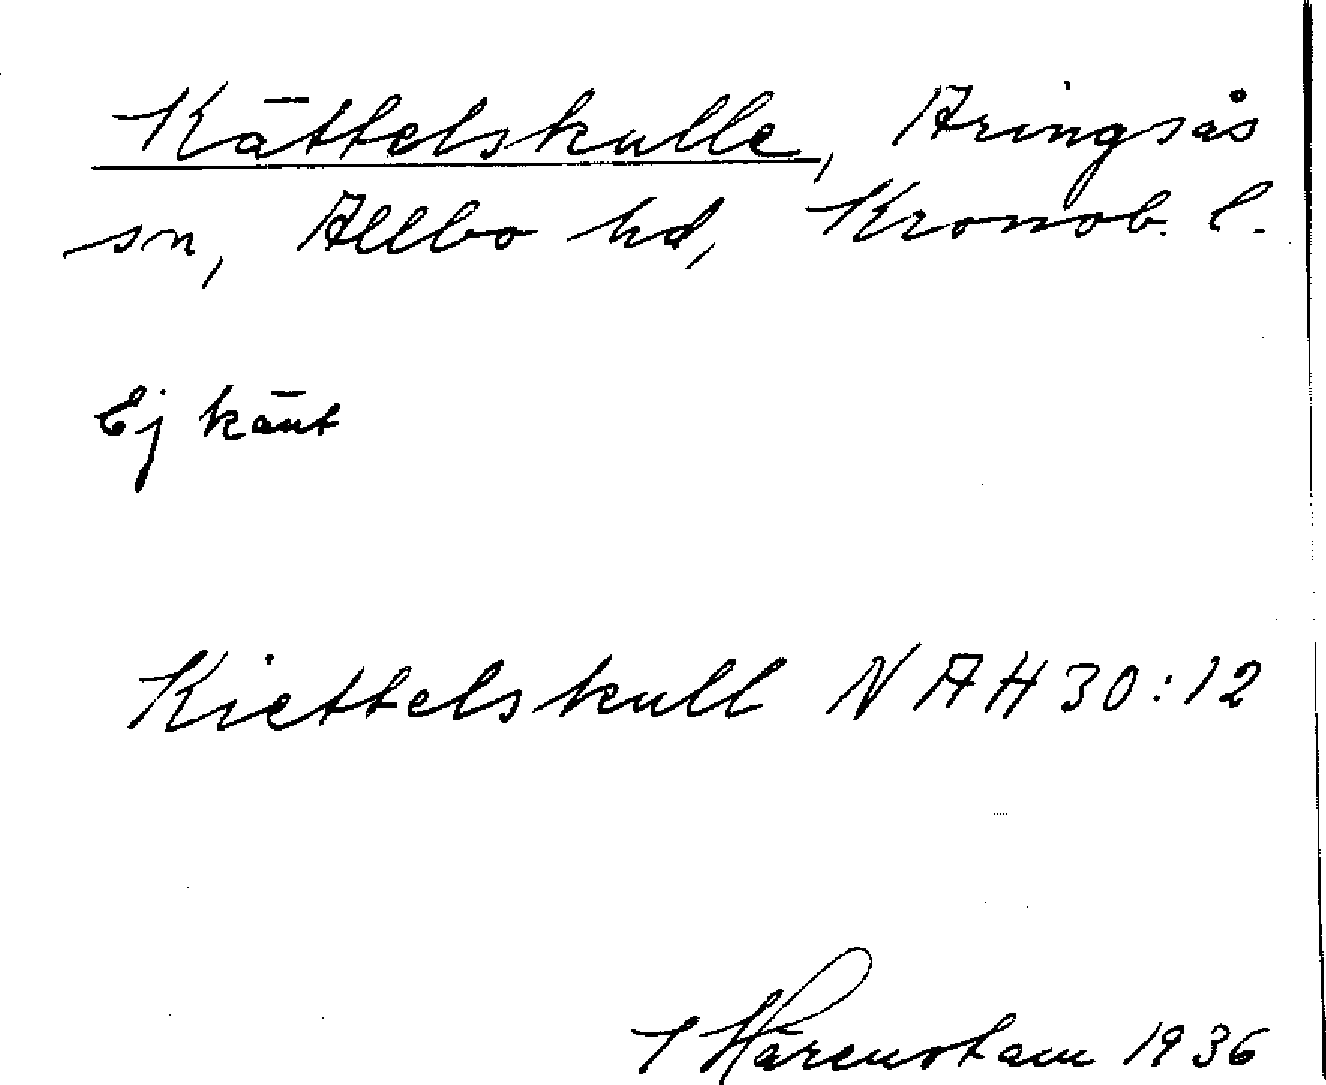 Kättelskulle, Aringsås
sn, Allbo hd, Kronob. l.
Ej känt
Kiettelskull NAH 30:12
1936